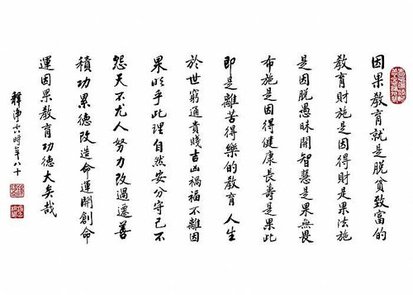 因果教育就是脫貧致富的
教育財施是因得財是果法施
是因脫愚昧開智慧是果無畏
布施是因得健康長壽是果此
即是離苦得樂的教育人生
於世窮通貴賤吉凶禍福不離因
果明乎此理自然安分守己不
怨天不尤人努力改過遷善
積功累德改造命運開創命
運因果教育功德大矣哉
釋淨空時年八十